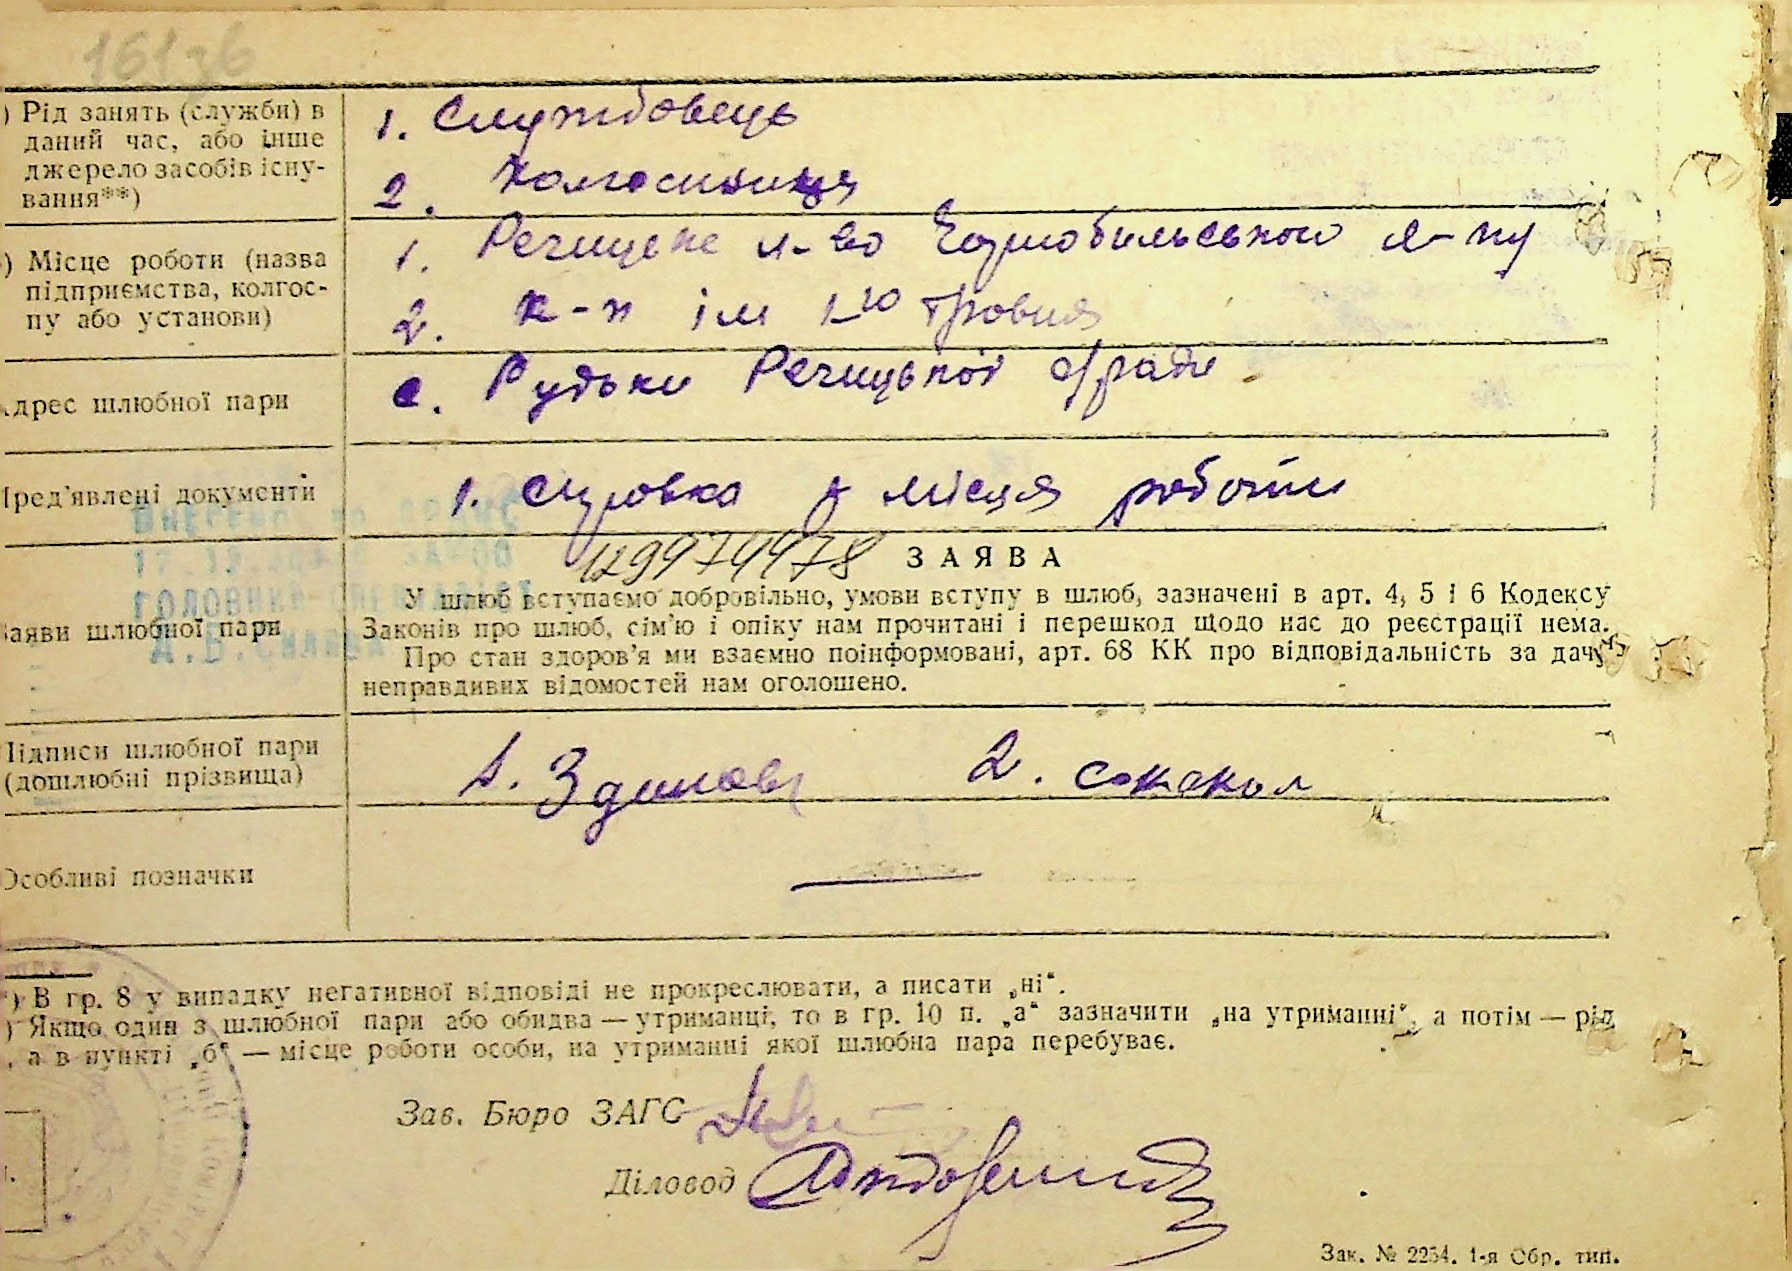 16136
) Рід занять (служби) в
даний час, або інше
джерело засобів існу-
вання**)
1. Службовець
2. Колгоспниця
) Місце роботи (назва
підприємства, колгос-
пу або установи)
1. Речицьке л-во Чорнобильського л-пу
2. к-п ім 1-го травня
Адрес шлюбної пари
с. Рудьки Речицької с/ради
Пред'явлені документи
1. Справка з місця роботи
Внесено до
ГОЛОВНИЙ СПЕЦІАЛІСТ
Заяви шлюбної пари
ЗАЯВА
У шлюб вступаємо добровільно, умови вступу в шлюб, зазначені в арт. 4, 5 і 6 Кодексу
Законів про шлюб, сім'ю і опіку нам прочитані і перешкод щодо нас до реєстрації нема.
Про стан здоров'я ми взаємно поінформовані, арт. 68 КК про відповідальність за дачу
неправдивих відомостей нам оголошено.
Підписи шлюбної пари
(дошлюбні прізвища)
1. 2. Сококол
Особливі позначки
*) В гр. 8 у випадку негативної відповіді не прокреслювати, а писати „ні“.
) Якщо один з шлюбної пари або обидва — утриманці, то в гр. 10 п. „а“ зазначити „на утриманні“, а потім — рід
, а в пункті „б“ — місце роботи особи, на утриманні якої шлюбна пара перебуває.
Зав. Бюро ЗАГС
Діловод
Зак. № 2254. 1-я Обр. тип.